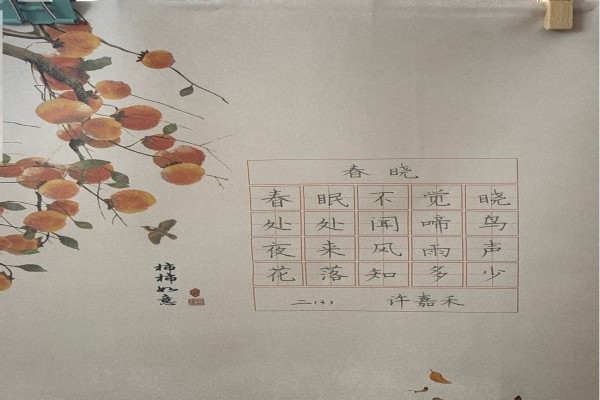 春晓
春眠不觉晓
处处闻啼鸟
夜来风雨声
花落知多少
二(3) 许嘉禾
柿柿如意